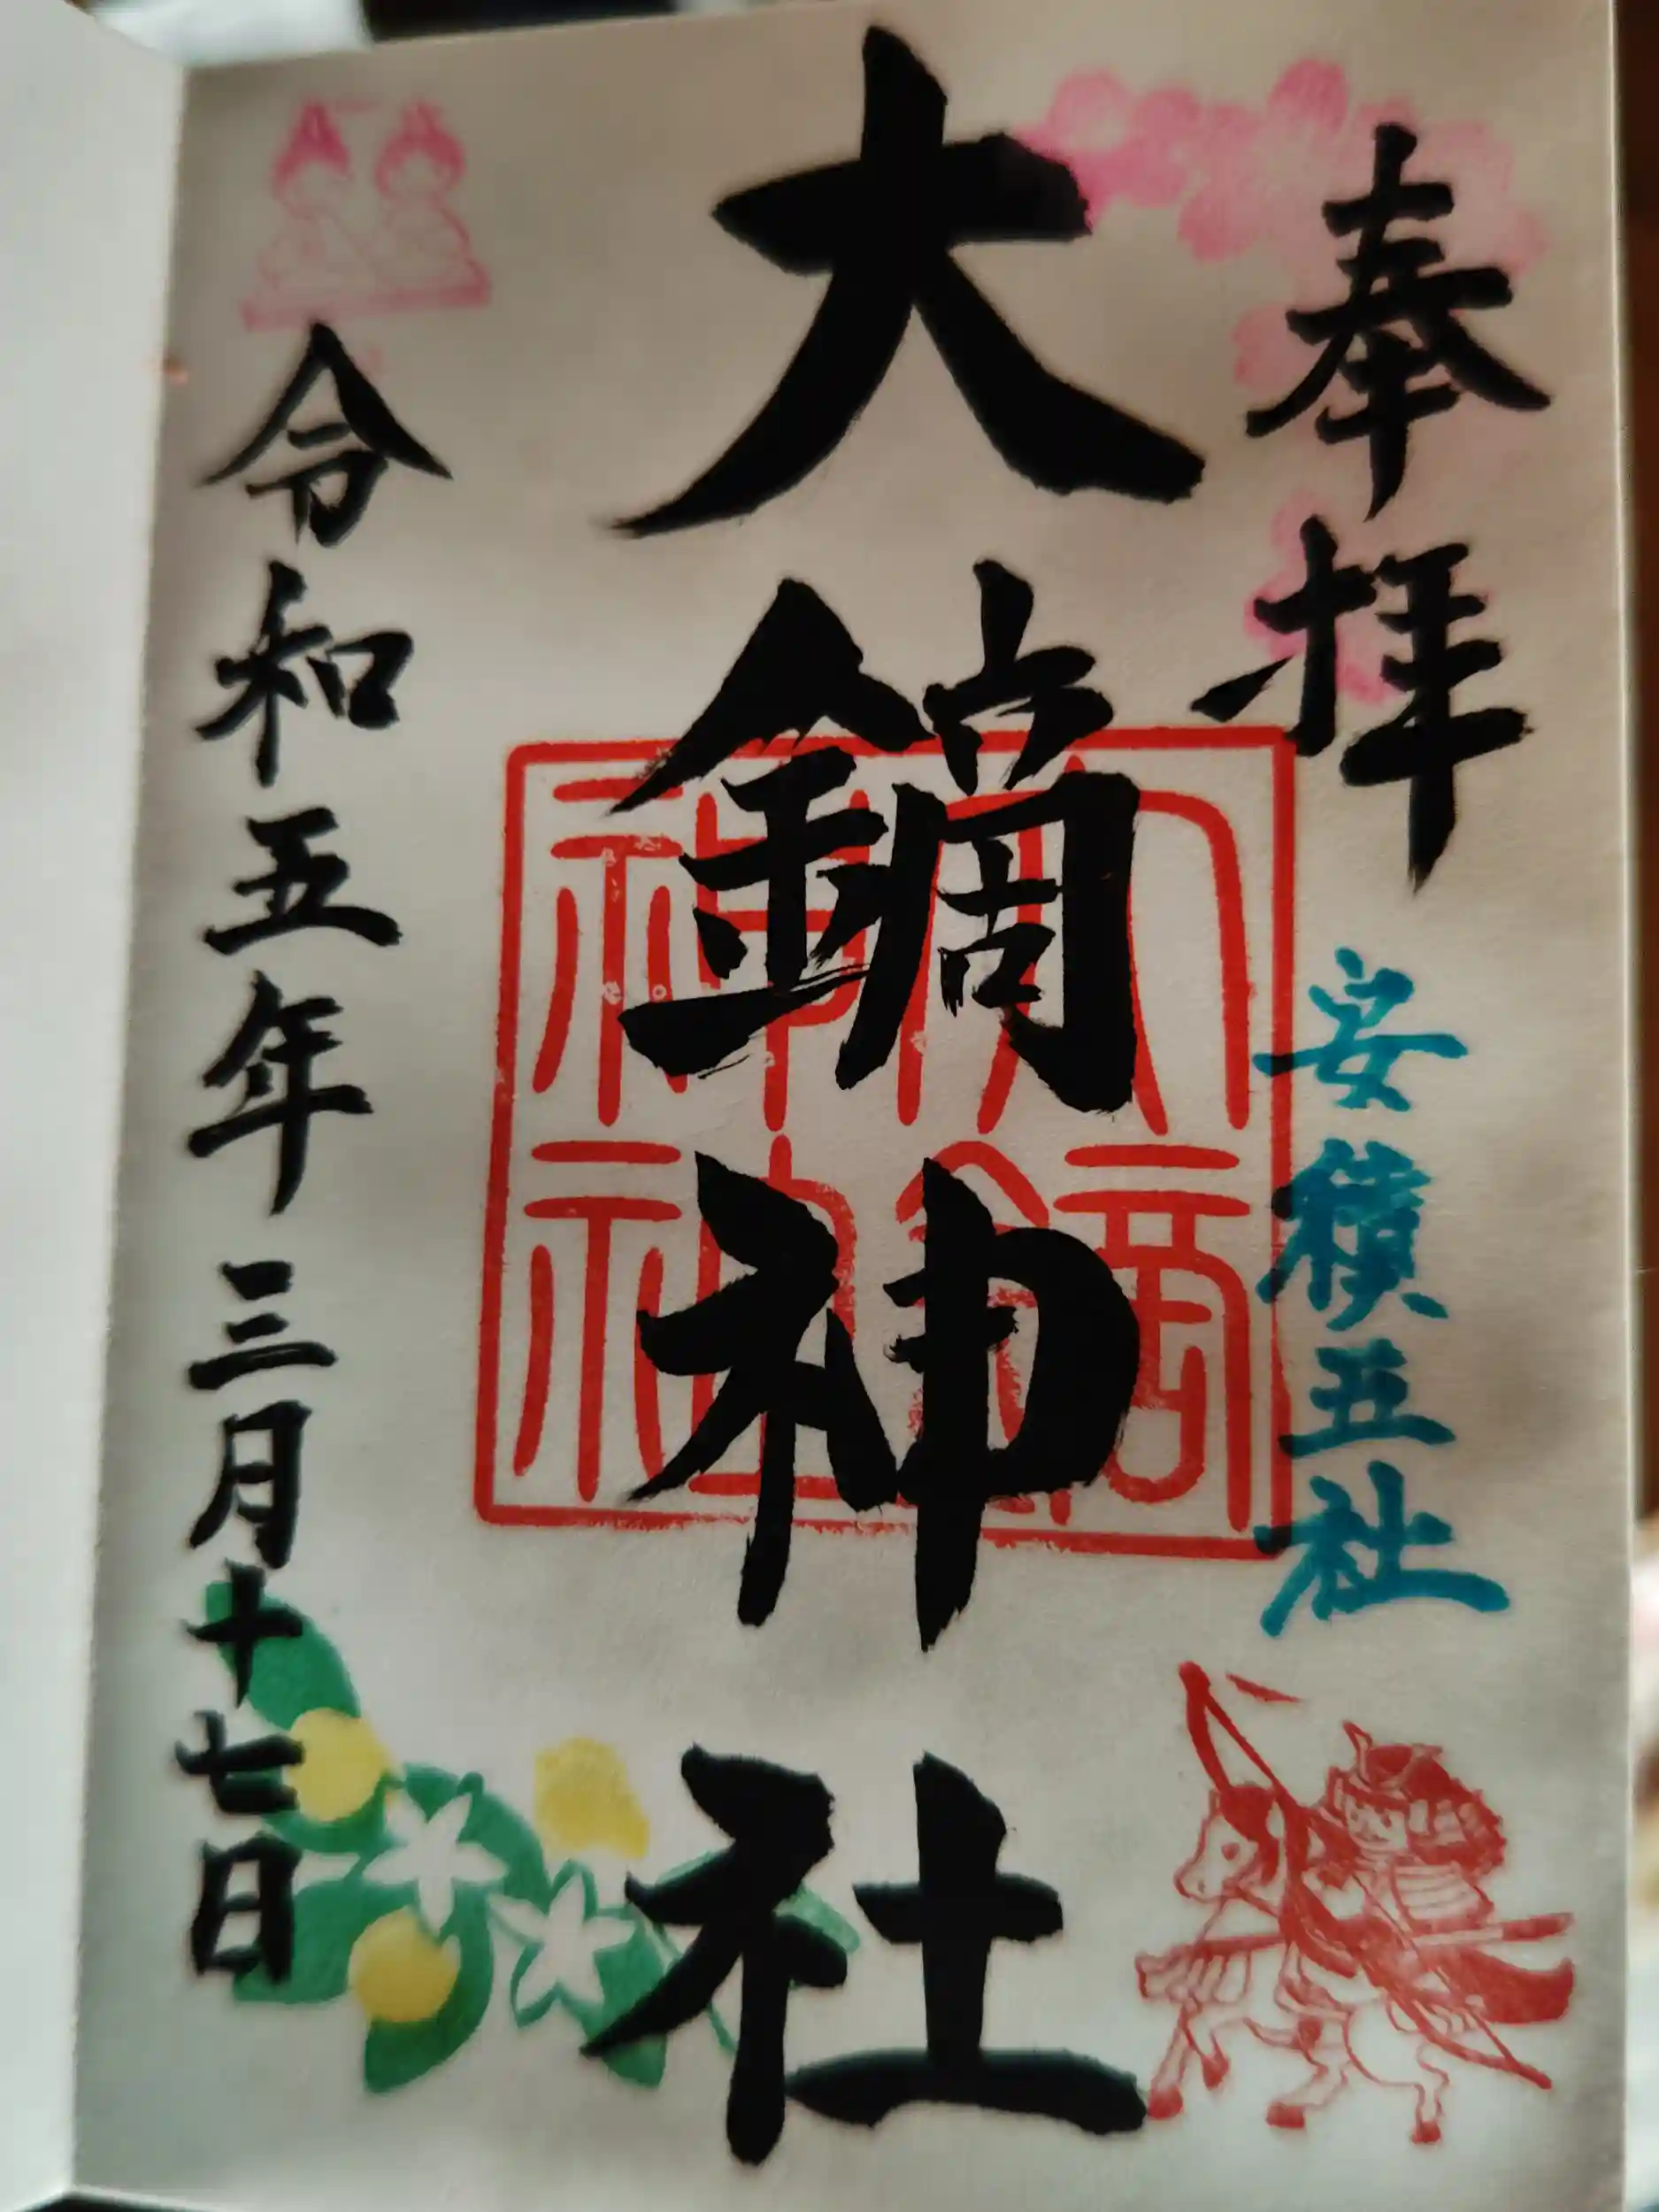 奉拝
安積五社
大鏑神社
大鏑神社
令和五年三月十七日